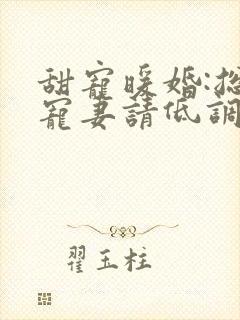 甜寵暖婚:總
寵妻請低調
翟玉柱